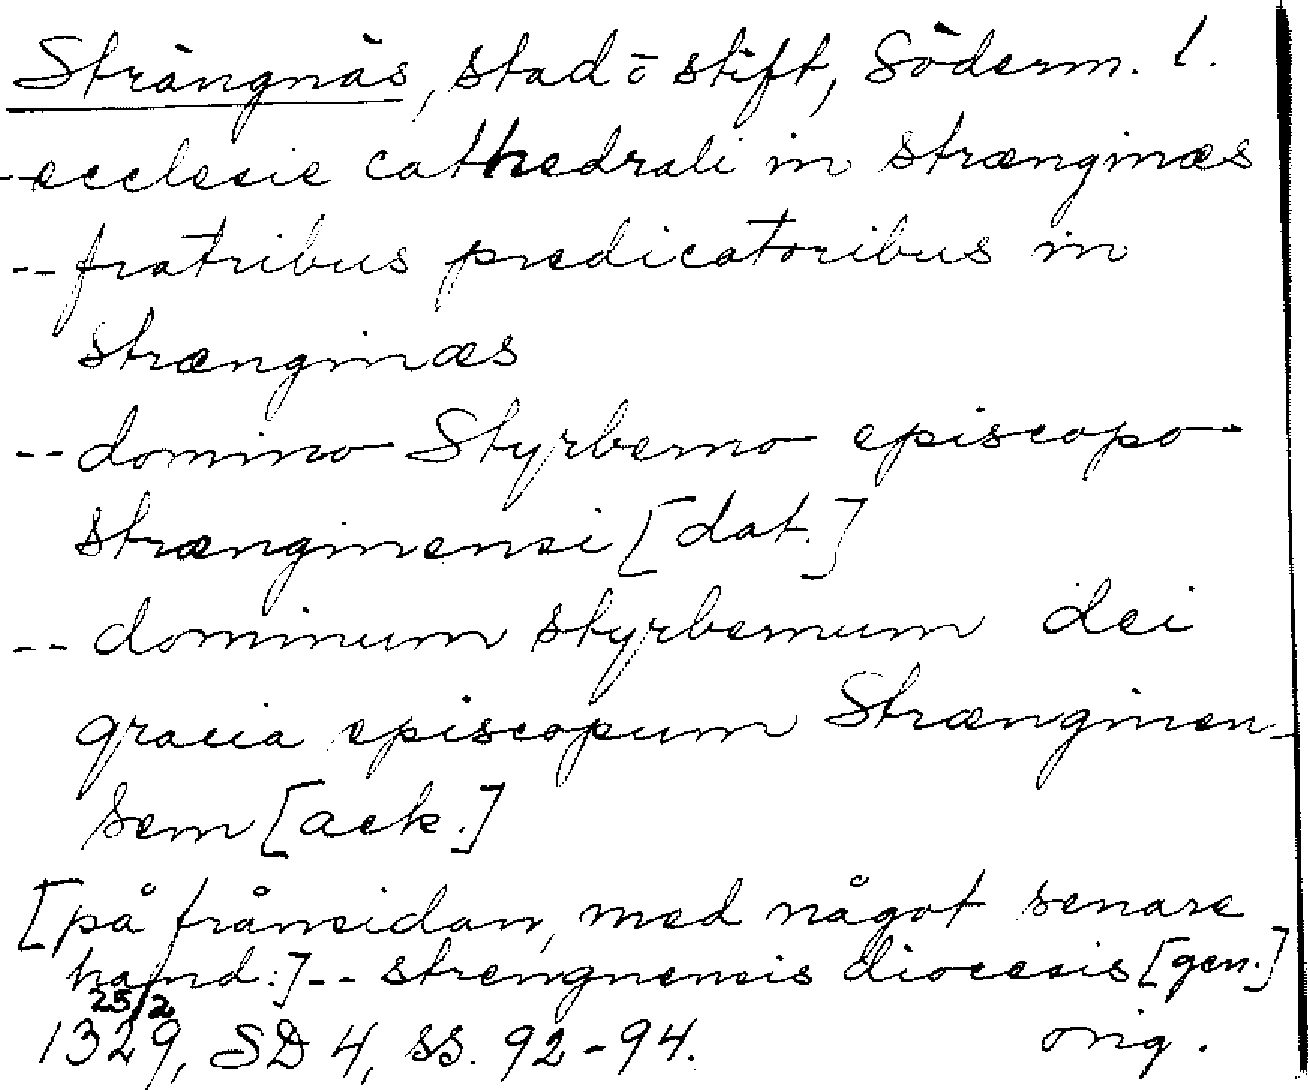 Strängnäs, stad ō stift, Söderm. l.
--ecclesie cathedrali in stræginnæs
--fratribus predicatoribus in
strænginæs
--domino Styrberno episcopo
strænginensi [dat.]
--dominum styrbernum dei
gracia episcopum Strænginen-
sem [ack.]
[på frånsidan, med något senare
hand:]-- strengnensis diocesis [gen.]
25/2
1329, SD 4, ss. 92-94. orig.